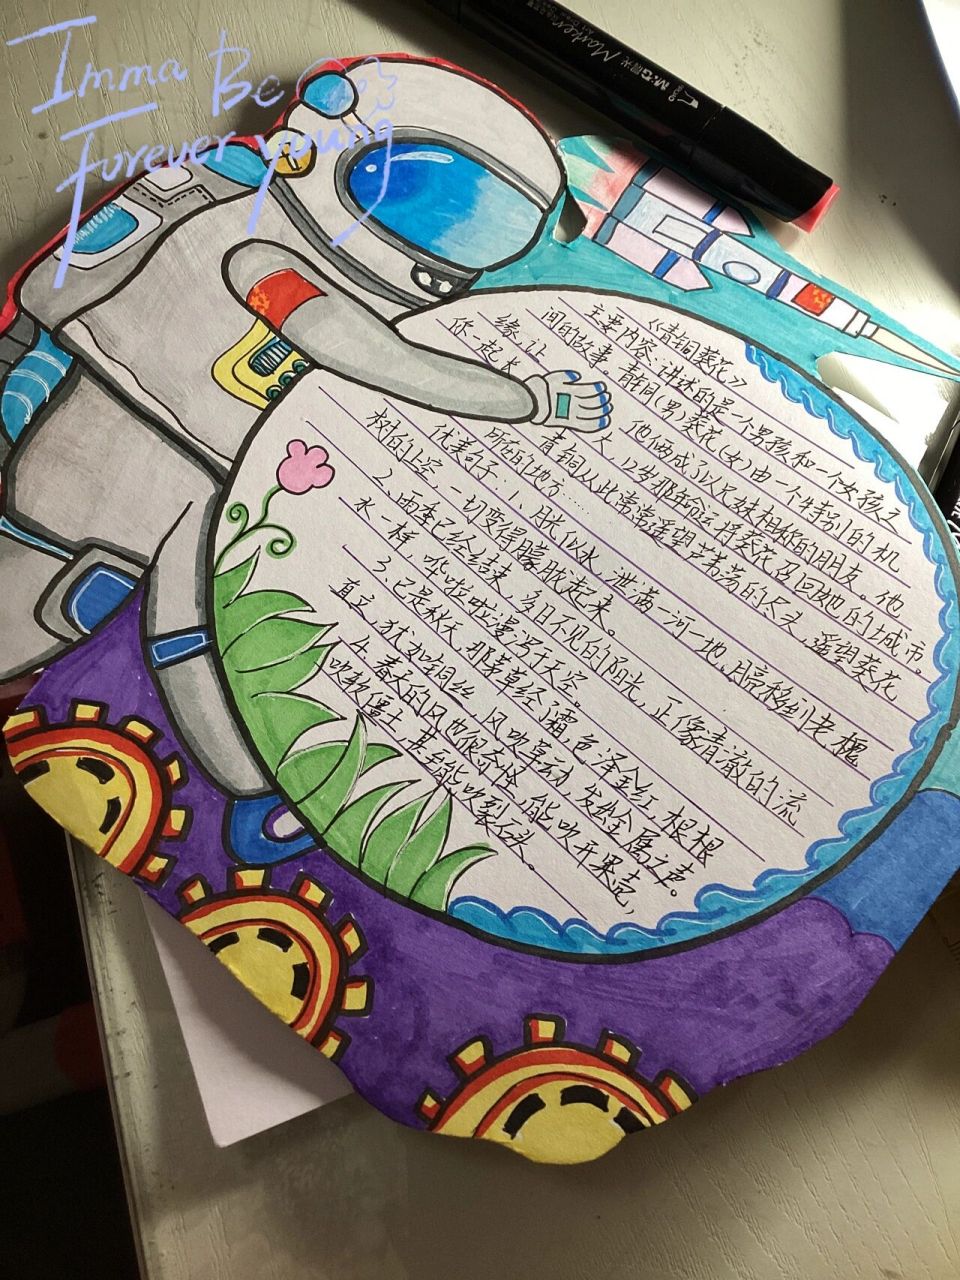 Imma Be
Forever young
M&G 晨光 Marker
《青铜葵花》
主要内容:讲述的是一个男孩和一个女孩之
间的故事。青铜(男)葵花(女)由一个特别的机
缘,让 他俩成了以兄妹相称的朋友。他
你一起长大,12岁那年命运将葵花召回她的城市。
青铜从此常常遥望芦苇荡的尽头,遥望葵花
所在的地方……
优美句子:1、月光似水,泄满一河一地,月亮移到老槐
树的上空,一切变得朦胧起来。
2、雨季已经结束,多日不见的阳光,正像清澈的流
水一样,哗啦啦漫泻于天空。
3、已是秋天,那草经霜,色泽金红,根根
直立,犹如铜丝,风吹草动,发出金属之声。
4、春天的风也很奇怪,能吹开果壳,
吹软僵土,甚至能吹裂石头。